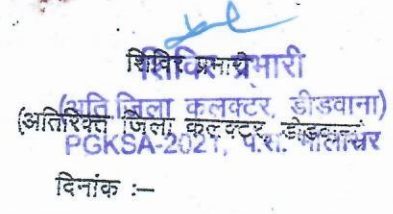 शिविर प्रभारी
शिविर प्रभारी
(अति.जिला कलक्टर, डीडवाना)
(अतिरिक्त जिला कलक्टर, डीडवाना)
PGKSA-2021, पं.स.
दिनांक :–